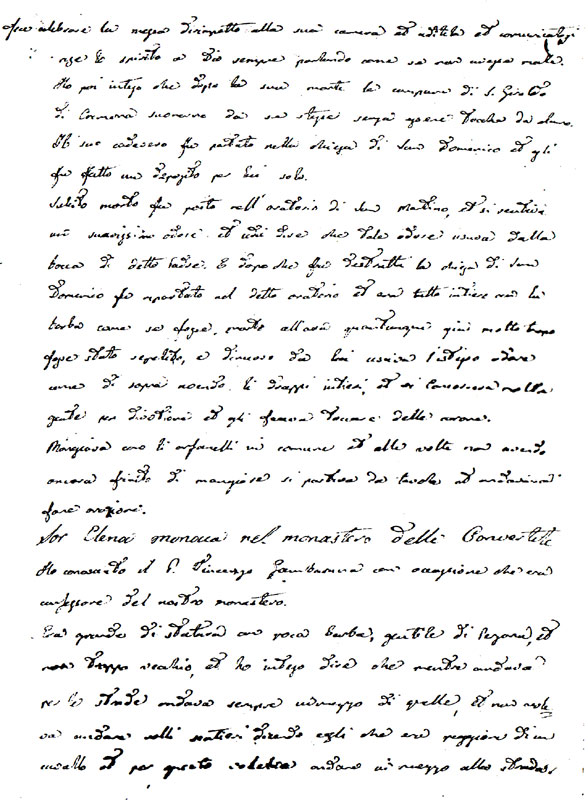 fece celebrare la messa dirimpetto alla sua camera et uditola et comunicatosi
rese lo spirito a Dio sempre parlando come se non avesse male.
Ho poi inteso che dopo la sua morte le campane di S. Geroldo
di Cremona suonorno da se stesse senza essere toccate da alcuno.
Il suo cadavero fu portato nella chiesa di San Domenico et gli
fu fatto un deposito per lui solo.
Subito morto fu posto nell'oratorio di San Martino, et si sentiva
un suavissimo odore et udì dire che tale odore usciva dalla
bocca di detto Padre. E dopo che fu distrutta la chiesa di San
Domenico fu riportato nel detto oratorio et era tutto intiero con la
barba come se fosse morto all'ora quantunque già molto tempo
fosse stato sepolto, e di nuovo da lui usciva l'istesso odore
come di sopra avendo li drappi intieri, et vi concorreva molta
gente per divotione et gli faceva toccare delle corone.
Mangiava con li orfanelli in comune et alle volte non avendo
ancora finito di mangiare si partiva da tavola et andava a
fare orazione.
Sor Elena monaca nel monastero delle Convertite
Ho conosciuto il P. Vincenzo Gambarana con occasione che era
confessore del nostro monastero.
Era grande di statura con poca barba, gentile di persona, et
non troppo vecchio, et ho inteso dire che mentre andava
per le strade andava sempre in mezzo di quelle, et non vole
va andare nelli sentieri dicendo egli che era peggiore di un
cavallo et per questo voleva andare in mezzo alla strada